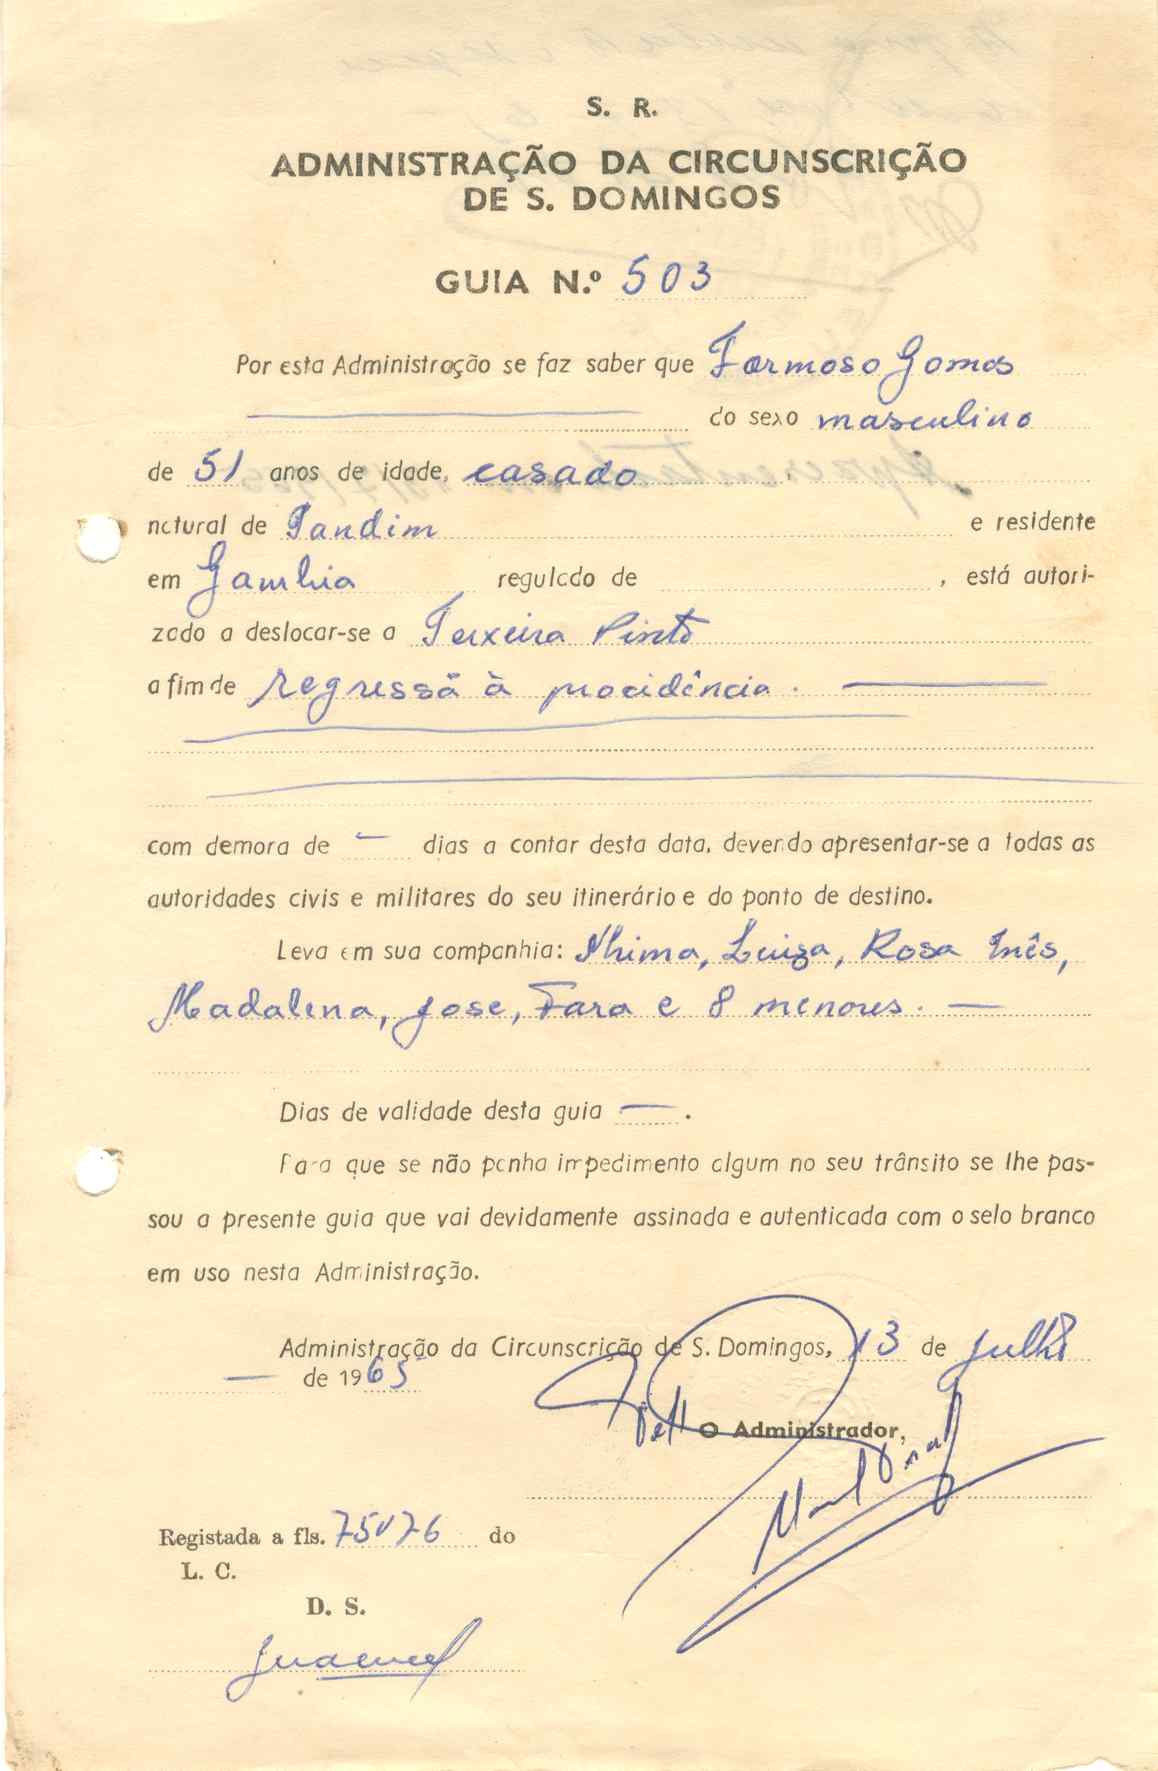 S. R.
ADMINISTRAÇÃO DA CIRCUNSCRIÇÃO
DE S. DOMINGOS
GUIA N.º 503
Por esta Administração se faz saber que Formoso Gomes
do sexo masculino
de 51 anos de idade, casado
natural de Pandim e residente
em Gambia regulado de , está autori-
zado a deslocar-se a Teixeira Pinto
a fim de regressã à procidência.
com demora de — dias a contar desta data, devendo apresentar-se a todas as
autoridades civis e militares do seu itinerário e do ponto de destino.
Leva em sua companhia: Nhima, Luiza, Rosa Inês,
Madalena, Jose, Fara e 8 menores. —
Dias de validade desta guia — .
Para que se não ponha impedimento algum no seu trânsito se lhe pas-
sou a presente guia que vai devidamente assinada e autenticada com o selo branco
em uso nesta Administração.
Administração da Circunscrição de S. Domingos, 13 de Julho
— de 1965
O Administrador,
Registada a fls. 75v76 do
L. C.
D. S.